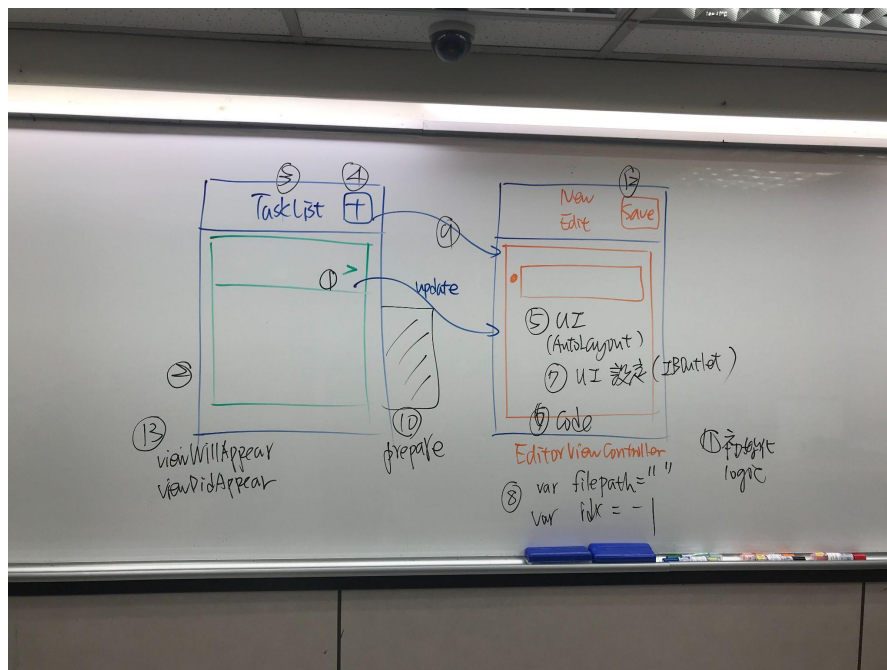 ③ ④
TaskList +
①
>
②
⑬
viewWillAppear
viewDidAppear
⑨
update
⑩
prepare
⑫
New
Edit
Save
⑤ UI
(AutoLayout)
⑦ UI 設定 (IBOutlet)
⑥ Code
EditorViewController
⑧ var filepath=""
var idx = -1
⑪ 初始化
logic